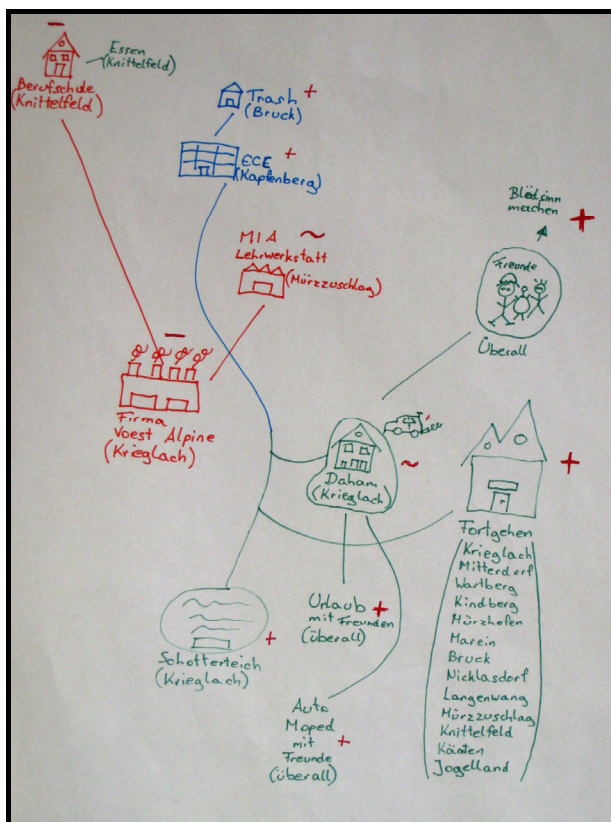 Essen
(Knittelfeld)
Berufschule
(Knittelfeld)
Trash
(Bruck)
ECE
(Kapfenberg)
MIA
Lehrwerkstatt
(Mürzzuschlag)
Blödsinn
machen
Freunde
Überall
Firma
Voest Alpine
(Krieglach)
Daham
(Krieglach)
Fortgehen
Krieglach
Mitterdorf
Wartberg
Kindberg
Mürzhofen
Marein
Bruck
Nicklasdorf
Langenwang
Mürzzuschlag
Knittelfeld
Kärnten
Jogelland
Urlaub
mit Freunden
(überall)
Schotterteich
(Krieglach)
Auto
Moped
mit
Freunde
(überall)